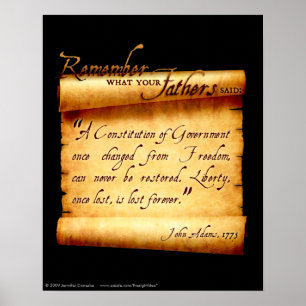 Remember
WHAT YOUR
Fathers SAID:
"A Constitution of Government
once changed from Freedom,
can never be restored. Liberty,
once lost, is lost forever."
John Adams, 1775